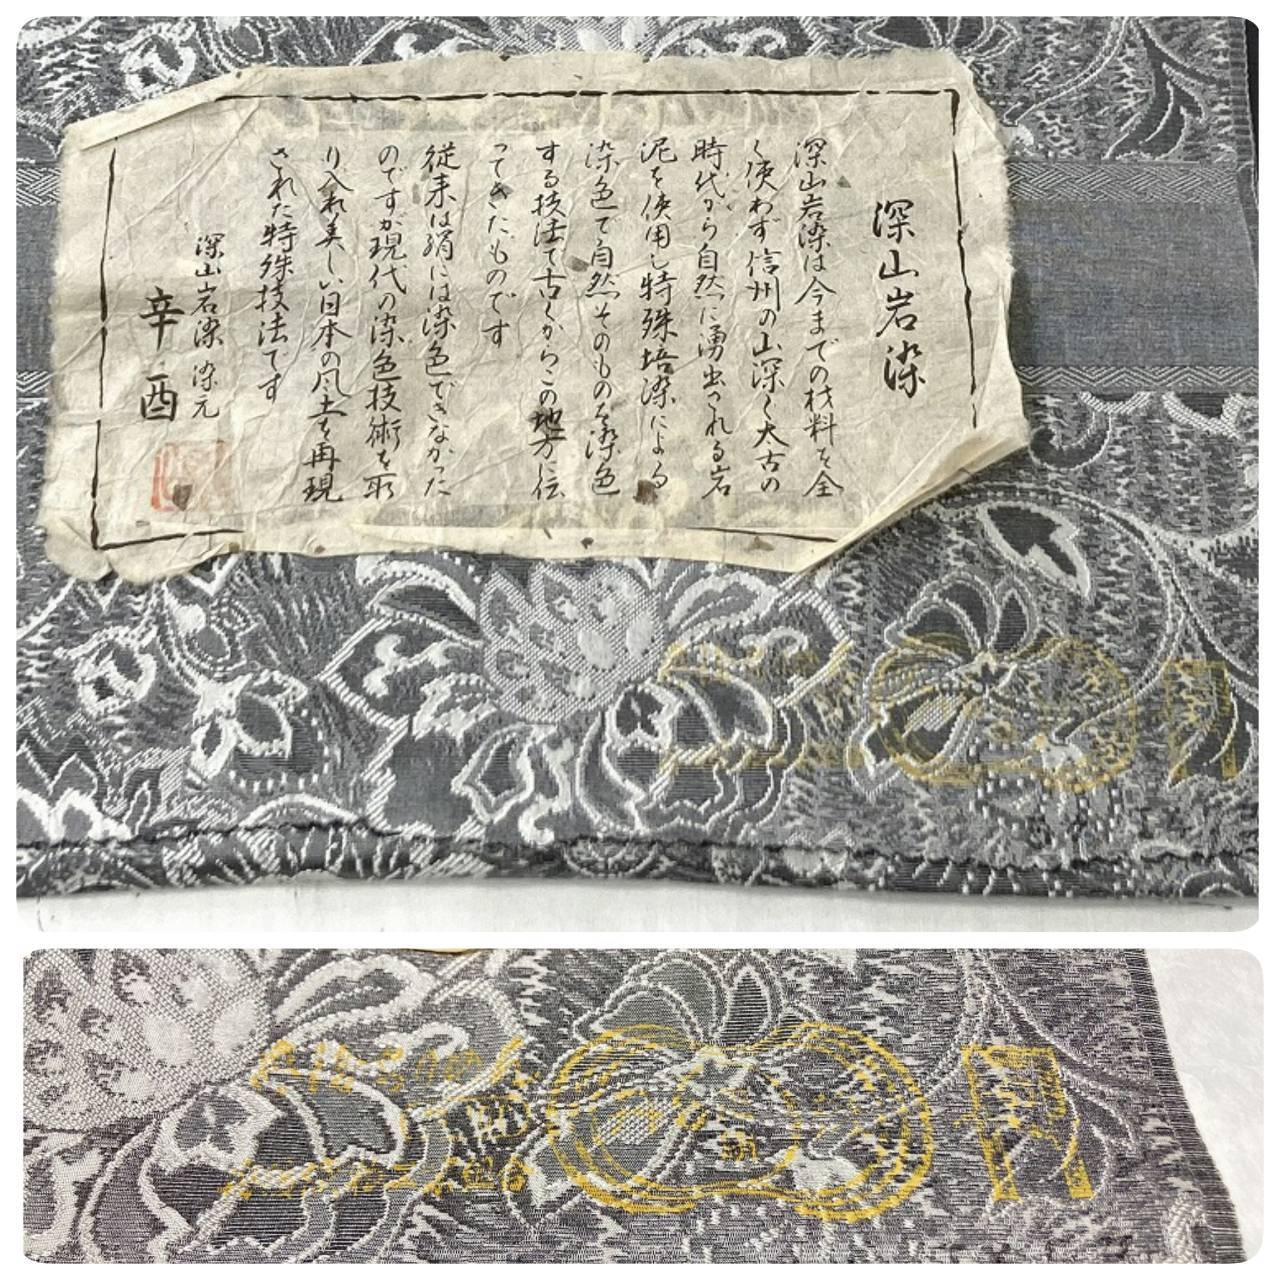 深山岩染
深山岩染は今までの材料を全
く使わず信州の山深く太古の
時代から自然に湧出される岩
泥を使用し特殊培染による
染色で自然そのものを染色
する技法で古くからこの地方に伝
ってきたものです
従来は絹には染色できなかった
のですが現代の染色技術を取
り入れ美しい日本の風土を再現
された特殊技法です
深山岩染 染元
辛酉